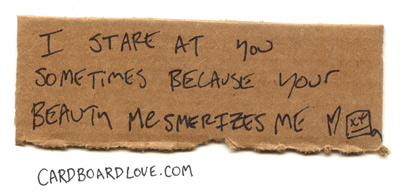 I STARE AT you
SOMETIMES BECAUSE your
BEAUTy MESMERIZES ME
CARDBOARDLOVE.COM